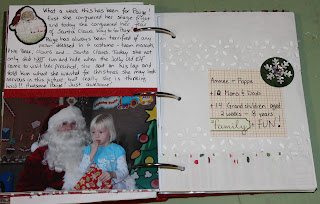 What a week this has been for Paige!
First she conquered her shape fright
and today she conquered her fear
of Santa Claus.
Paige has always been terrified of any
dressed in a costume - team mascots,
Five Bear, Clowns and Santa Claus. Today she not
only did NOT run and hide when the Jolly Old Elf
came to visit her preschool, she sat on his lap and
told him what she wanted for Christmas. She may look
nervous in this picture, but really she is thinking
hard!! Awesome Paige - Just awesome!
Ammee + Pappa
+12 Moms & Dads
+14 Grand children aged
2 weeks - 8 years
family FUN!